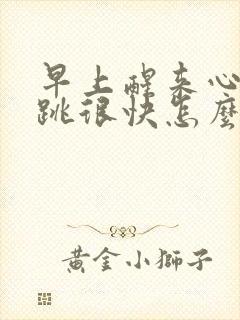 早上醒来心
跳很快怎麼
黃金小獅子